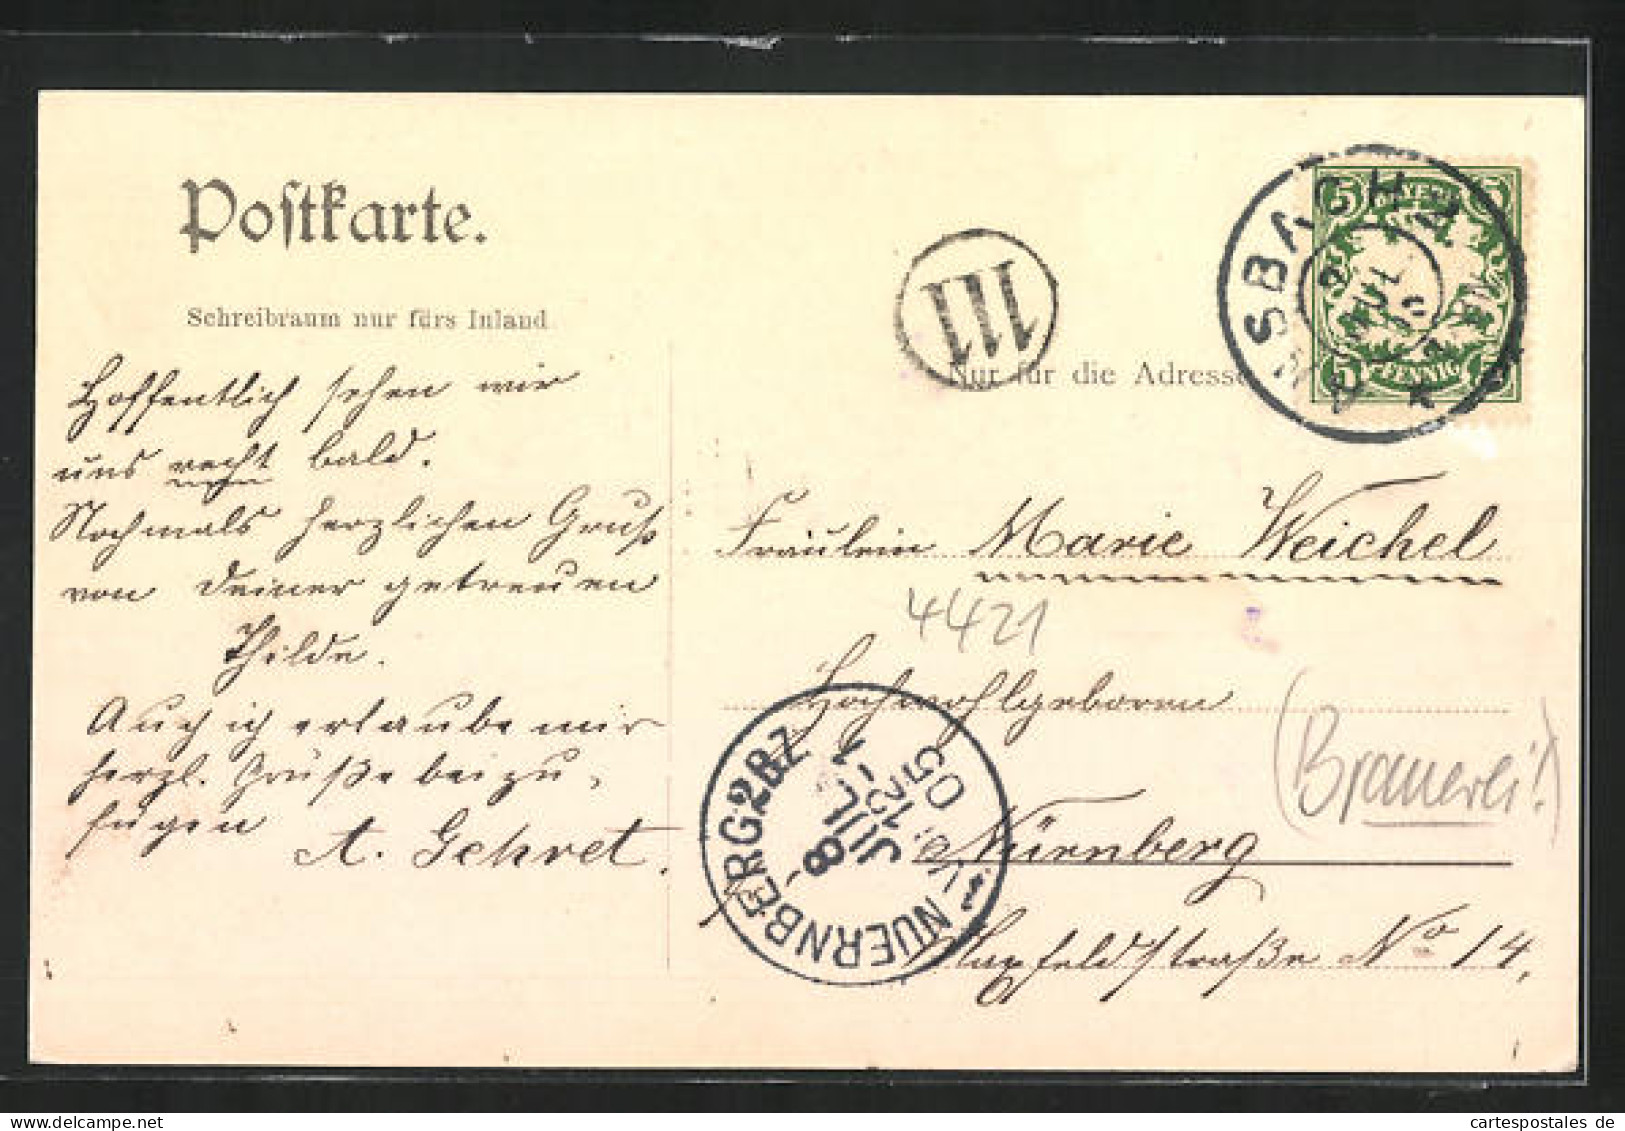 Postkarte.
Schreibraum nur fürs Inland
Hoffentlich sehen wir
uns recht bald.
Nochmals herzlichen Gruß
von Deiner getreuen
Thilde.
Auch ich erlaube mir
herzl. Grüße beizu-
fügen
A. Gehret.
III
Nur für die Adresse
BAYERN
5 5
5 5
PFENNIG
SBACH
JUL
Fräulein Marie Weichel
4421
Hochwohlgeboren
(Brauerei!)
Nürnberg
Maxfeldstraße No 14,
NUERNBERG 2 BZ
8 JUL
1-
JUL 25
V. 00
cartespostales de